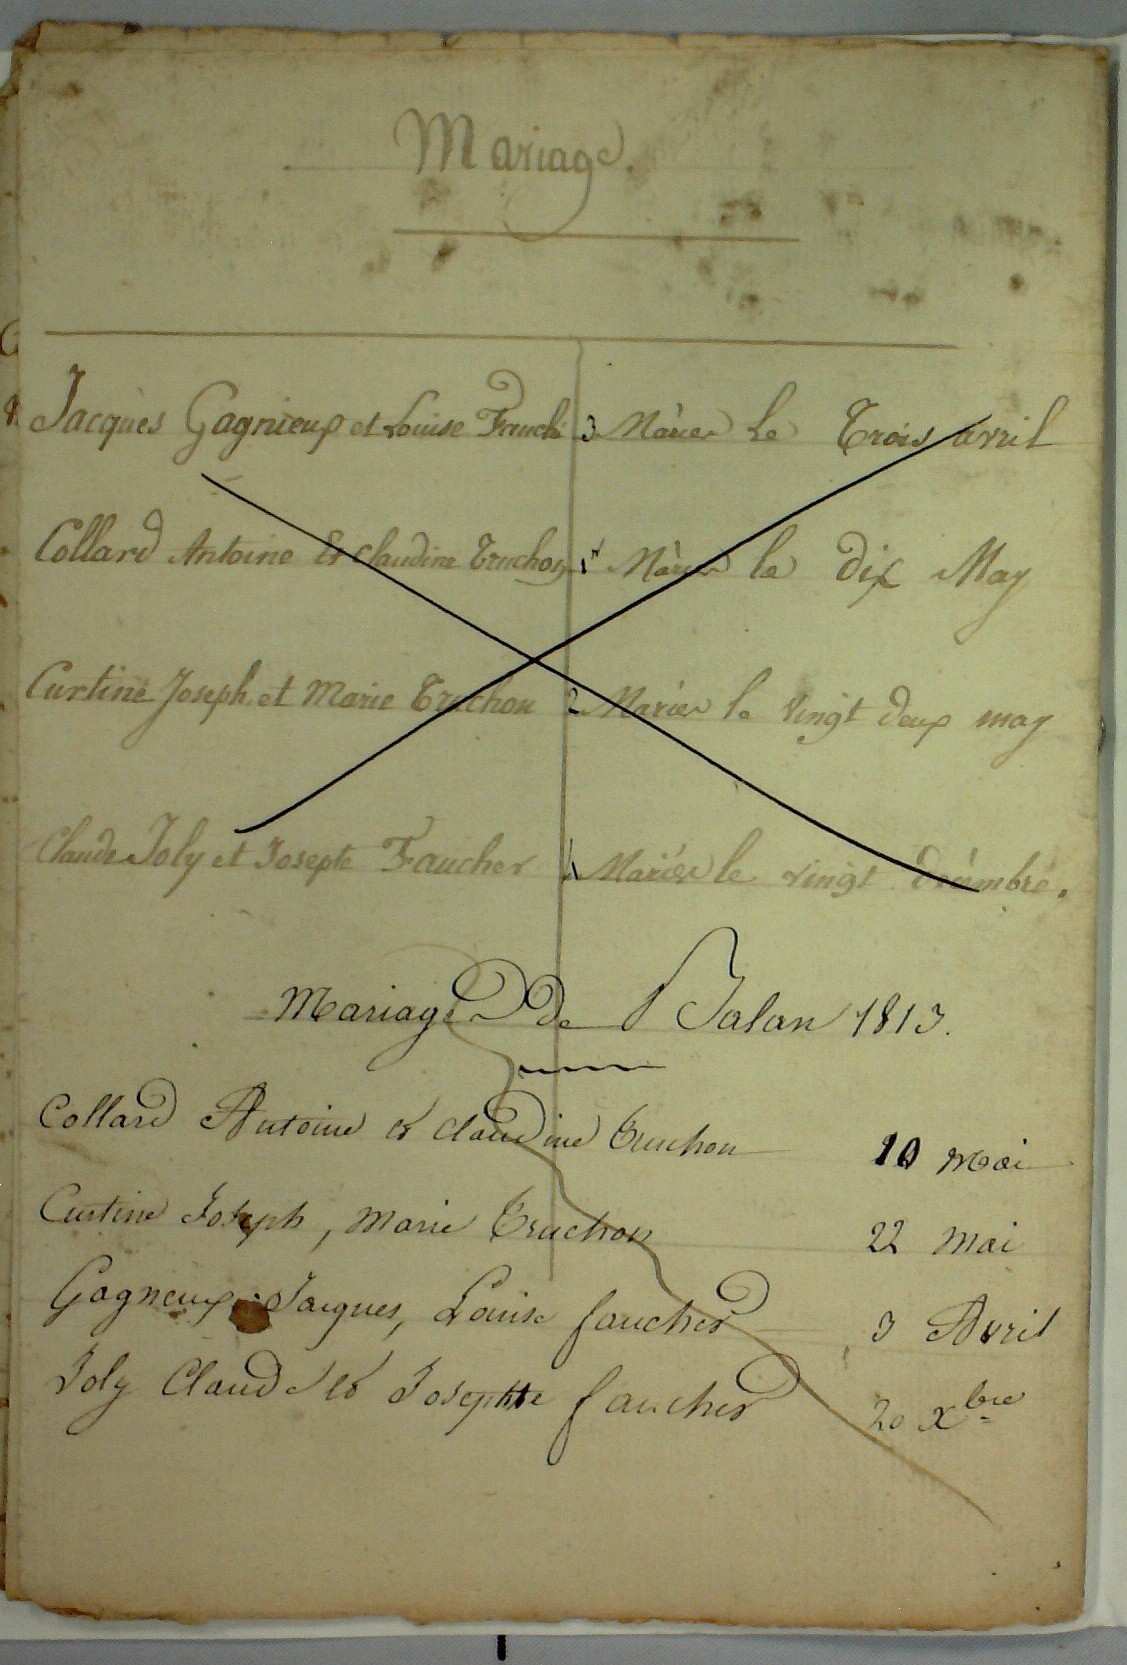 Mariage.
Jacques Gagnieux et Louise Fauché 3 Mariés Le Trois avril
Collard Antoine Et Claudine Truchon 1 Mariés le dix May
Curtine Joseph et Marie Truchon 2 Mariés le Vingt deux may
Claude Joly et Josepte Faucher 4 Mariés le vingt
Mariage de Jalan 1813.
Collard Antoine et claudine Truchon 10 Mai
Curtine Joseph, Marie Truchon 22 Mai
Gagneux Jacques, Louise faucher 3 Avril
Joly Claude et Josephte faucher 20 Xbre